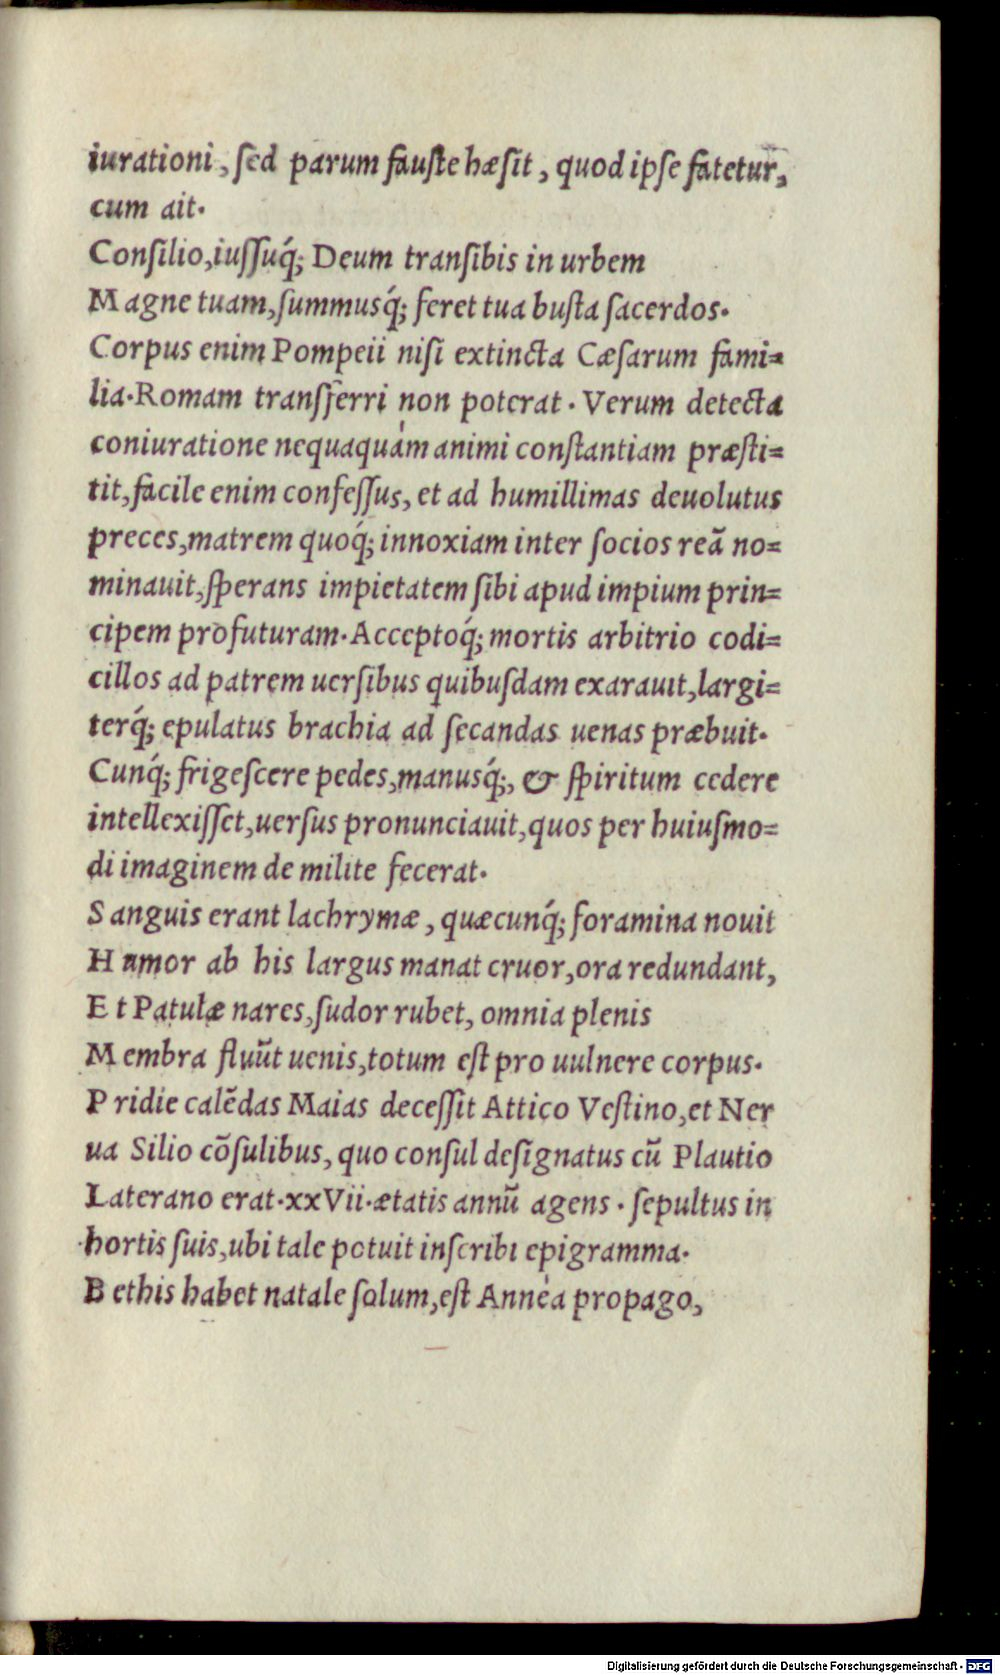 iurationi, sed parum fauste hæsit, quod ipse fatetur,
cum ait.
Consilio, iussuq́; Deum transibis in urbem
Magne tuam, summusq́; feret tua busta sacerdos.
Corpus enim Pompeii nisi extincta Cæsarum fami=
lia. Romam transferri non poterat. Verum detecta
coniuratione nequaquám animi constantiam præsti=
tit, facile enim confessus, et ad humillimas deuolutus
preces, matrem quoq́; innoxiam inter socios reã no=
minauit, sperans impietatem sibi apud impium prin=
cipem profuturam. Acceptoq́; mortis arbitrio codi=
cillos ad patrem uersibus quibusdam exarauit, largi=
terq́; epulatus brachia ad secandas uenas præbuit.
Cunq́; frigescere pedes, manusq́;, & spiritum cedere
intellexisset, uersus pronunciauit, quos per huiusmo=
di imaginem de milite fecerat.
Sanguis erant lachrymæ, quæcunq́; foramina nouit
Humor ab his largus manat cruor, ora redundant,
Et Patulæ nares, sudor rubet, omnia plenis
Membra fluũt uenis, totum est pro uulnere corpus.
Pridie calẽdas Maias decessit Attico Vestino, et Ner
ua Silio cõsulibus, quo consul designatus cũ Plautio
Laterano erat. xxVii. ætatis annũ agens. sepultus in
hortis suis, ubi tale potuit inscribi epigramma.
Bethis habet natale solum, est Annèa propago,
Digitalisierung gefördert durch die Deutsche Forschungsgemeinschaft - DFG